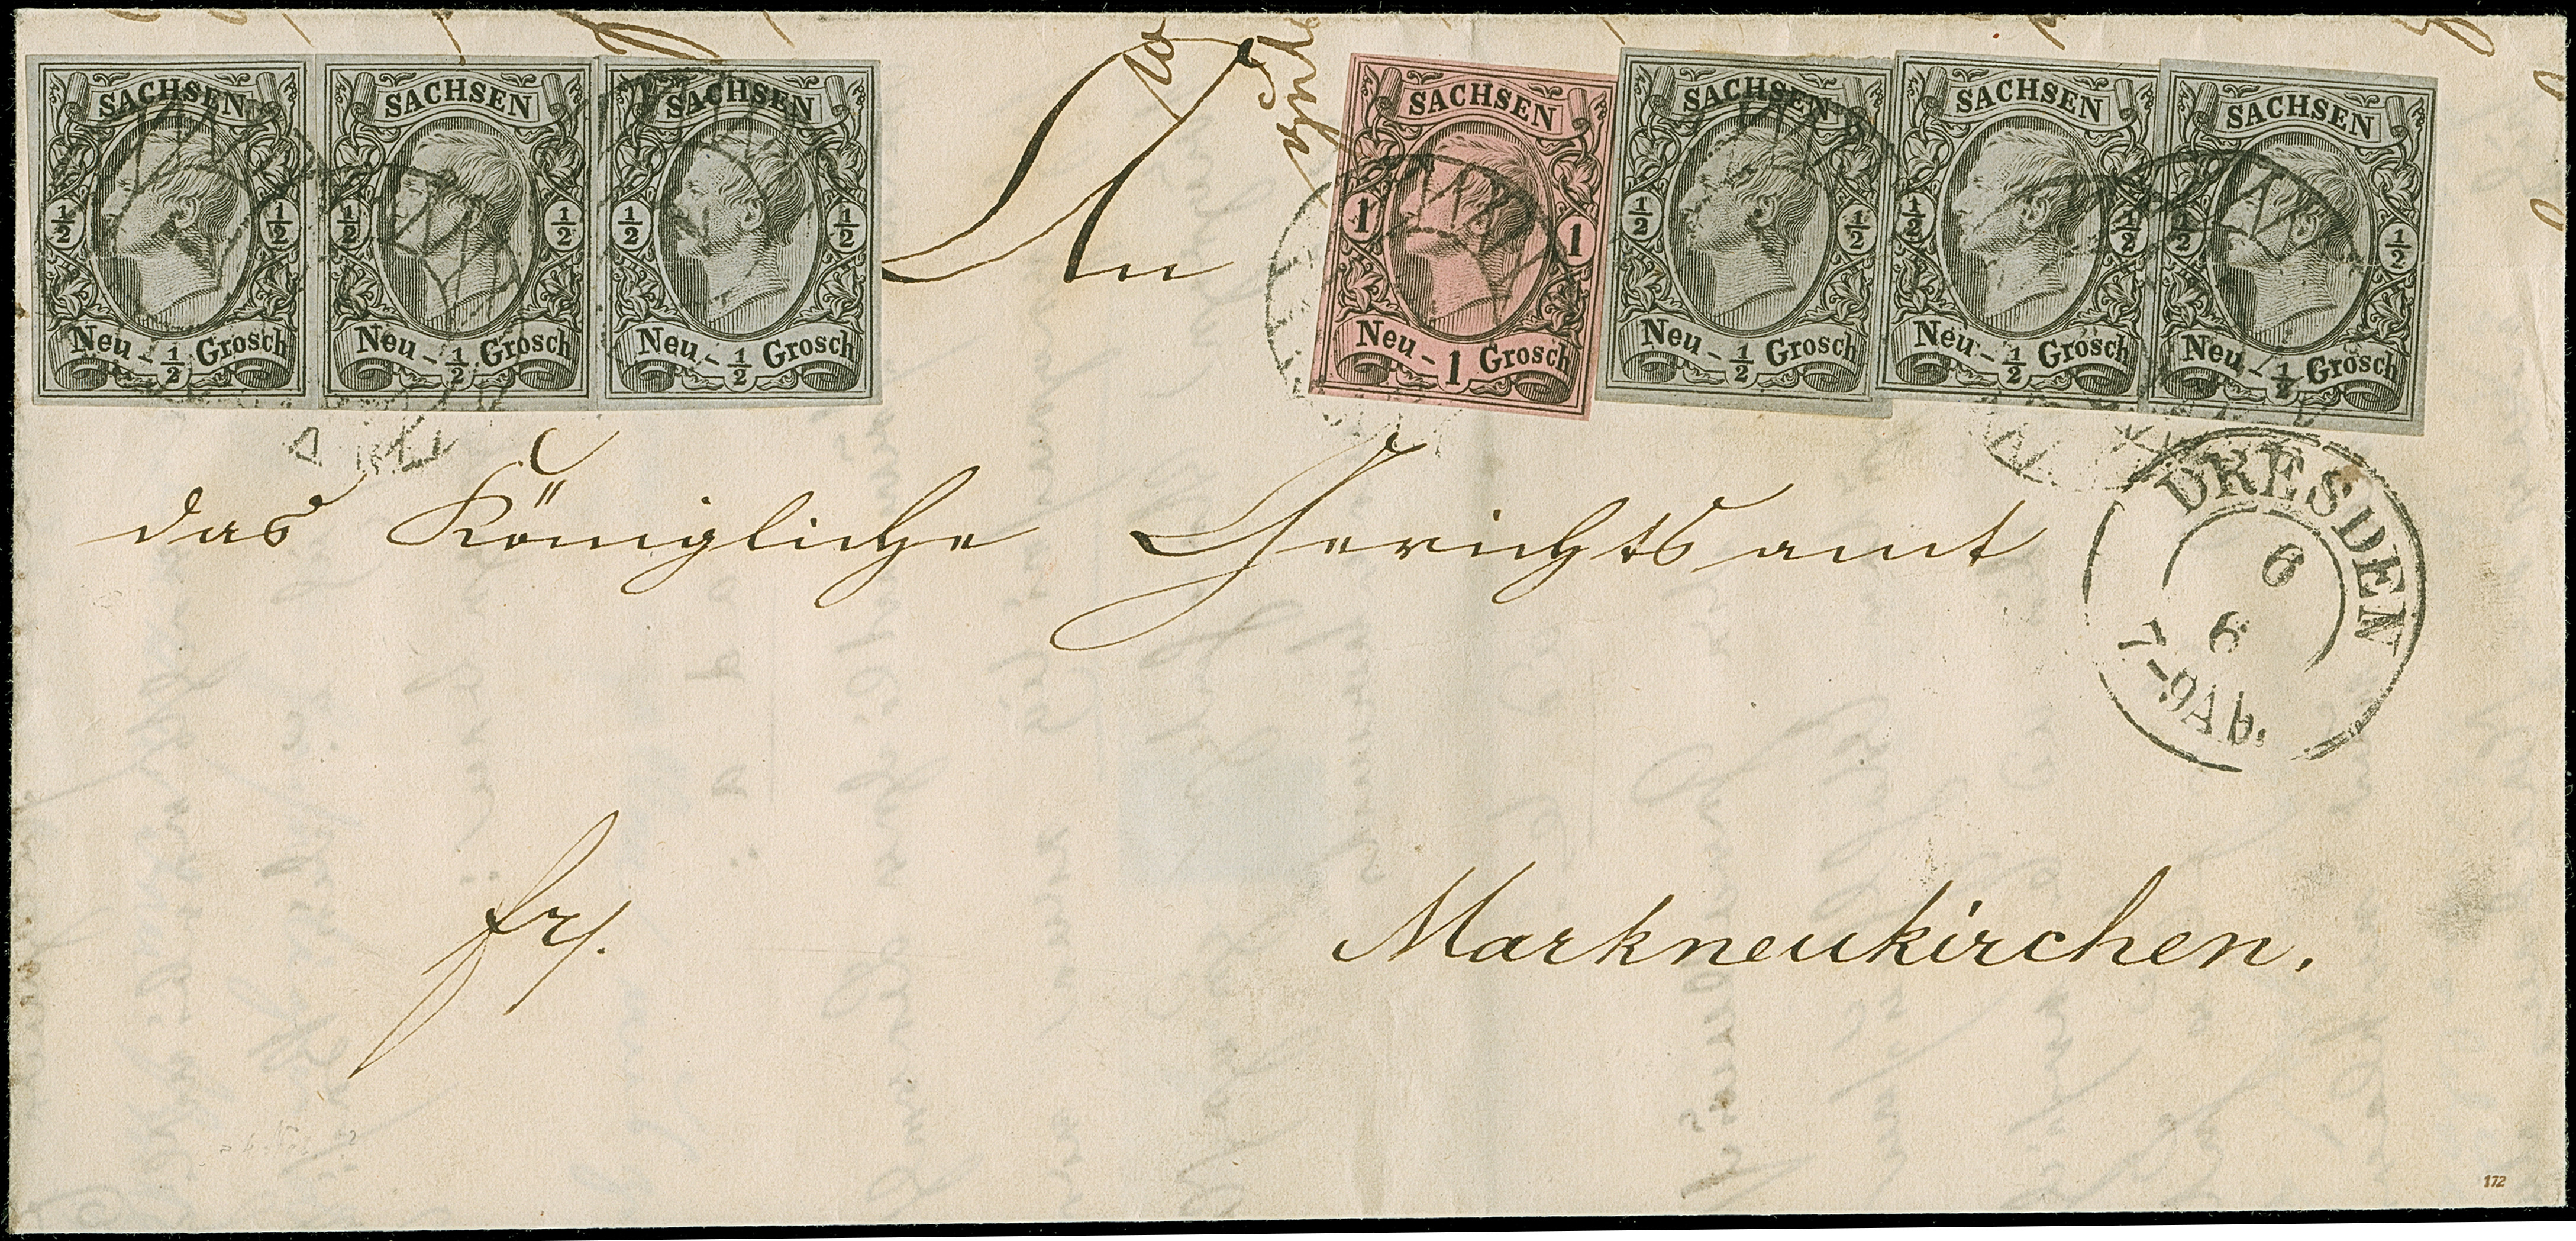 SACHSEN
1/2 1/2
Neu-1/2 Grosch
SACHSEN
1/2 1/2
Neu-1/2 Grosch
SACHSEN
1/2 1/2
Neu-1/2 Grosch
An
SACHSEN
1 1
Neu-1 Grosch
SACHSEN
1/2 1/2
Neu-1/2 Grosch
SACHSEN
1/2 1/2
Neu-1/2 Grosch
SACHSEN
1/2 1/2
Neu-1/2 Grosch
das Königliche Gerichtsamt
DRESDEN
6
6
fr.
Markneukirchen.
172